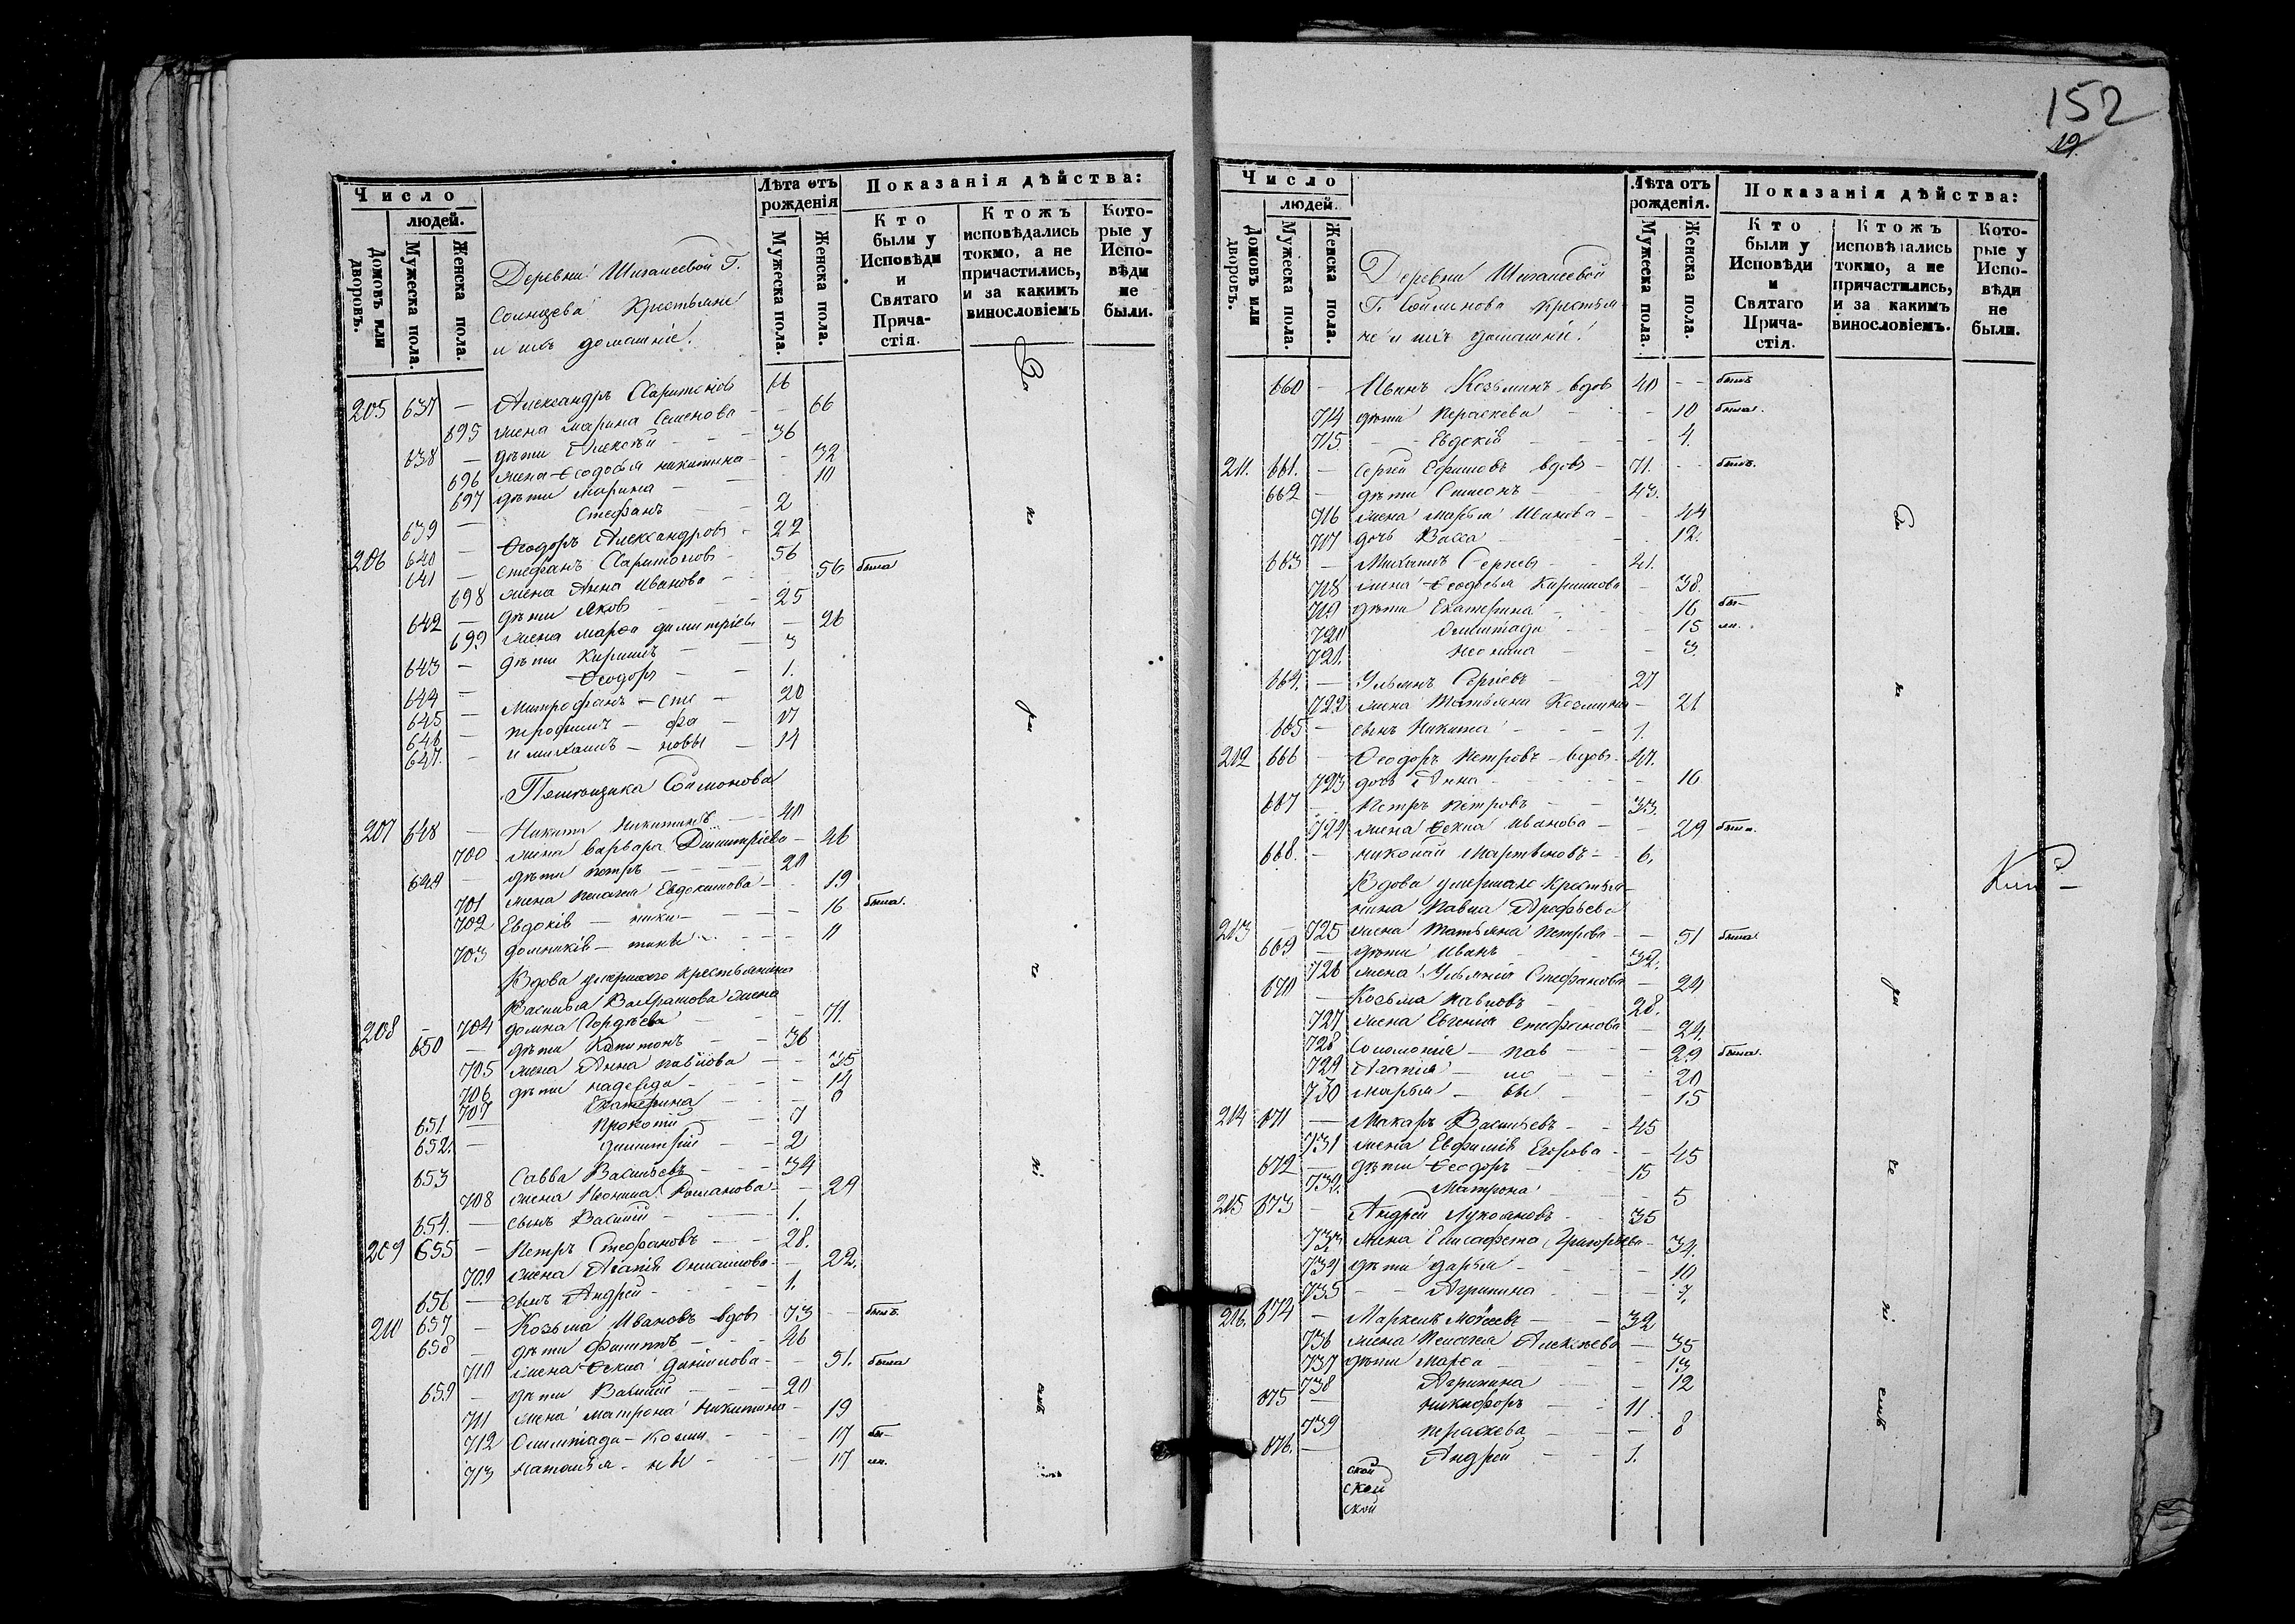 Число
людей.
Домовъ или дворовъ.
Мужеска пола.
Женска пола.
Деревни Шигаеевой Г.
Солнцева Крестьяне
и ихъ домашніе!
Лѣта отъ рожденія
Мужеска пола.
Женска пола.
Показанія дѣйства:
Кто были у Исповѣди и Святаго Прича-
стія.
Ктожъ исповѣдались токмо, а не причастились, и за какимъ винословіемъ
Кото-
рые у Испо-
вѣди не были.
205 637 — Александръ Харитоновъ 66
695 жена Марина Семенова - - 66
638 — дѣти Алексѣй - - - 36
696 жена Ѳеодосья Никитина - - 32
697 дѣти Марина - - 10
639 — Стефанъ - - 2
640 — Ѳеодоръ Александровъ - 22
206 641 — Стефанъ Харитоновъ 56
698 жена Анна Иванова - - 56 была
642 — дѣти Яковъ - - 25
699 жена Марѳа Димитріева - 26
643 — дѣти Кириллъ - - 3
644 — Ѳеодоръ - - 1.
645 — Митрофанъ — Сте - 20
646 — Трофимъ — фа - 17
647. - и Михаилъ — новы - 14
Помѣщика Соймонова
207 648 — Никита Никитинъ - 40
700 жена Варвара Димитріева - 46
649 — дѣти Петръ - - - 20
701 жена Пелагея Евдокимова - - 19
702 Евдокія — ники - - - 16 была.
703 Домникія — тины - - - 11
Вдова умершаго крестьянина
Василья жена
208 - 704 Домна Гордѣева - - 71.
650 — дѣти Капитонъ - - 36
705 жена Анна Павлова - - 35
706 дѣти Надежда - - - 14
707 Екатерина - - - 6
651. — Прокопій - - 7
652. — Димитрій - - 2
653 Савва Васильевъ - - - 34
708 жена Неонила Романова - - 29
654. — сынъ Василій - - - 1.
209 655 — Петръ Стефановъ - - 28.
709 жена Агапія Онисимова - - 22.
656 — сынъ Андрей - - - 1.
210 657 — Козьма Ивановъ вдовъ - 73 - - былъ
658 — дѣти Филиппъ - - 46
710 жена Ѳекла Данилова - - 51. была
659 — дѣти Василій - - - 20
711 жена Матрона Никитина - 19
712 Олимпіада — Козми - - - 17 бы-
713 Наталья - ны - - - 17 ли.
152
19.
Число
людей.
Домовъ или дворовъ.
Мужеска пола.
Женска пола.
Деревни Шигаеевой
Г. Соймонова Крестья
не и ихъ домашніе!
Лѣта отъ рожденія.
Мужеска пола.
Женска пола.
Показанія дѣйства:
Кто были у Исповѣди и Святаго Прича-
стія.
Ктожъ исповѣдались токмо, а не причастились, и за какимъ винословіемъ.
Кото-
рые у Испо-
вѣди не были.
660 — Иванъ Козьминъ вдов 40 - - былъ
714 дѣти Параскева - - 10 была.
715 - - Евдокія - - - 4.
211. 661. — Сергей Ефимовъ вдовъ - 71. - - былъ.
662 — дѣти Симеонъ - - 43.
716 жена Марья Иванова - - 44
717 дочь Васса - - - 12.
663 — Михаилъ Сергеев - - 41.
718 жена Ѳеодосья Кириллова - 38.
719 дѣти Екатерина - - - 16 бы-
720 Олимпіада - - - 15 ли.
721. Неонила - - 3
664. — Ульянъ Сергіевъ - 27
722 жена Татьяна Козмина - 21
665 — сынъ Никита - - - 1.
212 666 — Ѳеодоръ Петровъ - вдовъ - 47.
723 дочь Анна - - - 16
667 — Петръ Петровъ - - 33.
724 жена Ѳекла Иванова - - 29 была.
668. — Николай Мартыновъ - - 6.
Вдова умершаго крестья-
нина Павла Арефьева
213 — 725 жена Татьяна Петрова - - 51 была
669 — дѣти Иванъ - - 32.
726 жена Ульянія Стефанова - 24
670 — Козьма Павловъ - - 28.
727 жена Евгенія Стефанова - 24.
728 Соломонія — Пав - - - 29 была.
729 Агапія — ло - - - 20
730 Марья — вы - - 15
214 671 — Макаръ Васильевъ - - 45
731 жена Евфимія Егорова - - 45
672 — дѣти Ѳеодоръ - - 15
732. Матрона - - - 5
215 673 — Андрей Лукояновъ - - 35
733 жена Елисафета Григорьева - 34.
734 дѣти Дарья - - - 10
735 - - Агрипина - - - 7.
216. 674 — Маркелъ Моѵсеевъ - - 32
736 жена Пелагея Алексѣева - 35
737 дѣти Марѳа - - - 13
738 Агрипина - - 12
675 — Никифоръ - - 11.
739 Параскева - - 8
676. — Андрей - - 1.
ской
ской
ской